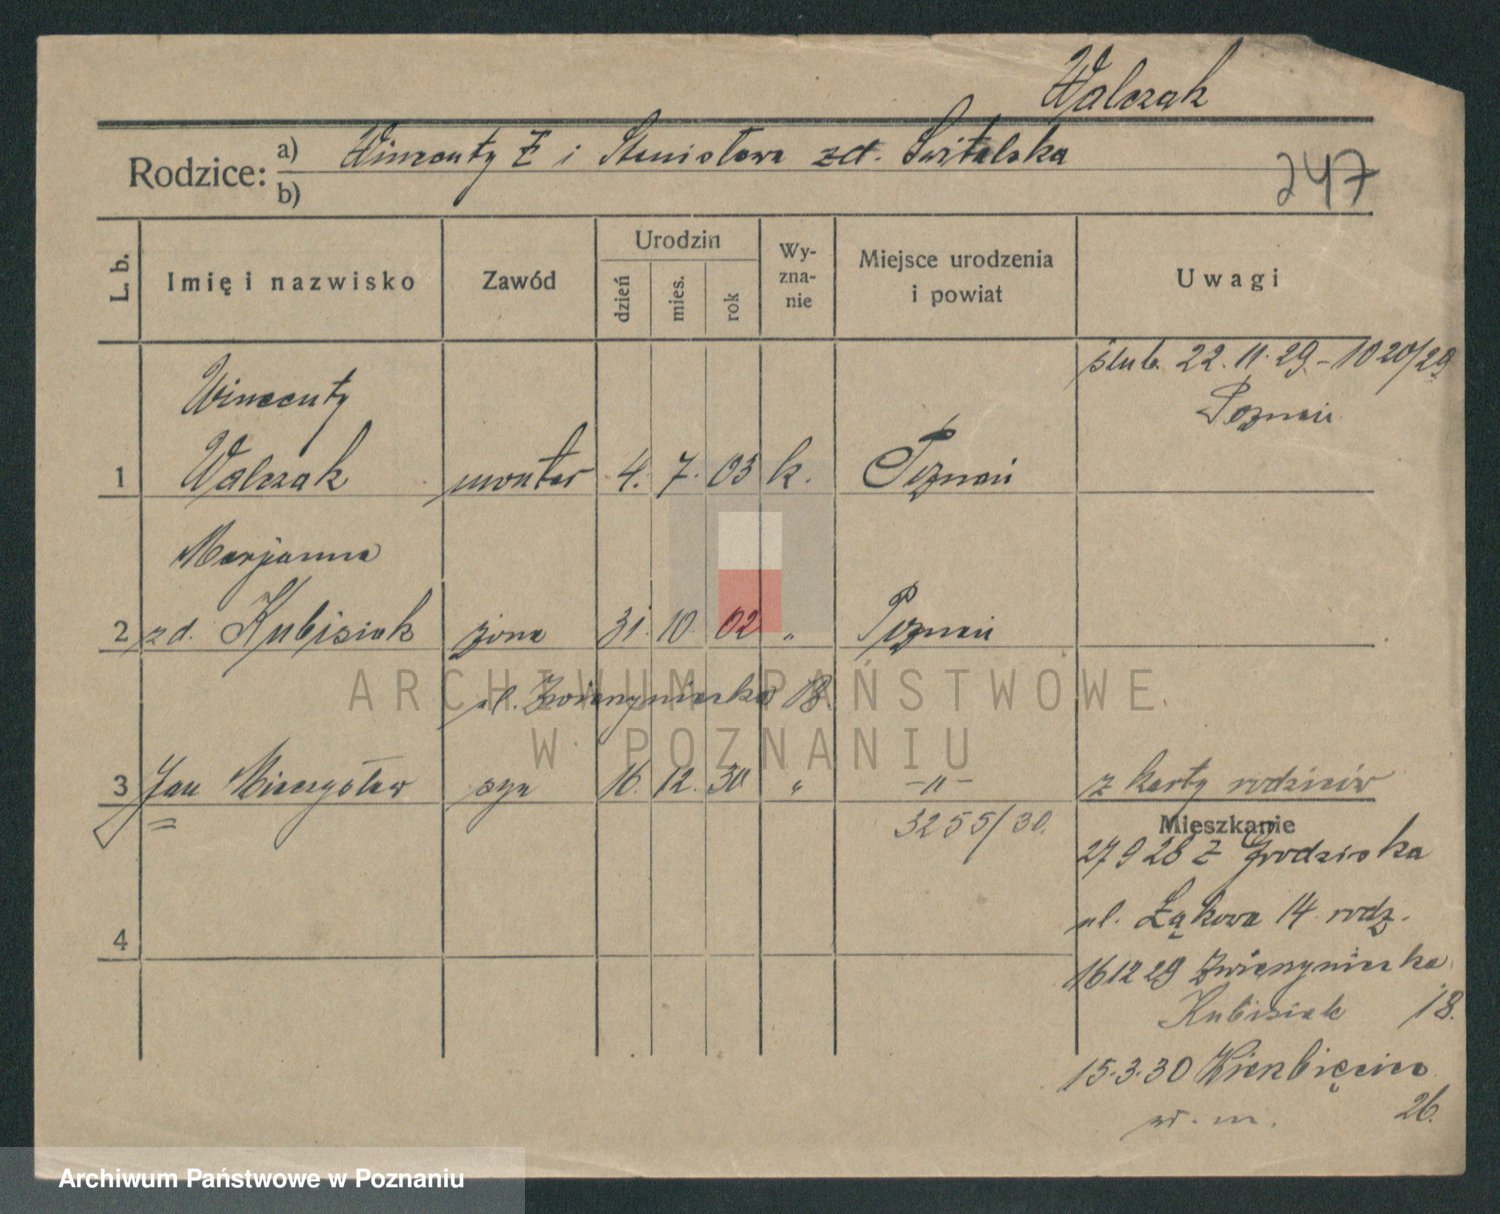 Walczak
Rodzice: a) Wincenty Ż i Stanisława zd. Świtalska
b)
247
L. b.
Imię i nazwisko
Zawód
Urodzin
dzień
mies.
rok
Wy-
zna-
nie
Miejsce urodzenia
i powiat
Uwagi
ślub. 22.11.29 - 1020/29
Poznań
Wincenty
1 Walczak monter 4. 7. 03 k. Poznań
Marjanna
2 zd. Kubisiak żona 31. 10. 02 " Poznań
ul. Zwierzyniecka 18
3 Jan Mieczysław syn 16. 12. 30 " -"- z karty rodziców
3255/30.
Mieszkanie
27 9 28 z Grodziska
4
ul. Łąkowa 14 rodz.
16 12 29 Zwierzyniecka
Kubisiak 18.
15.3.30 Wierzbięcice
w. m. 26.
ARCHIWUM PAŃSTWOWE
W POZNANIU
Archiwum Państwowe w Poznaniu